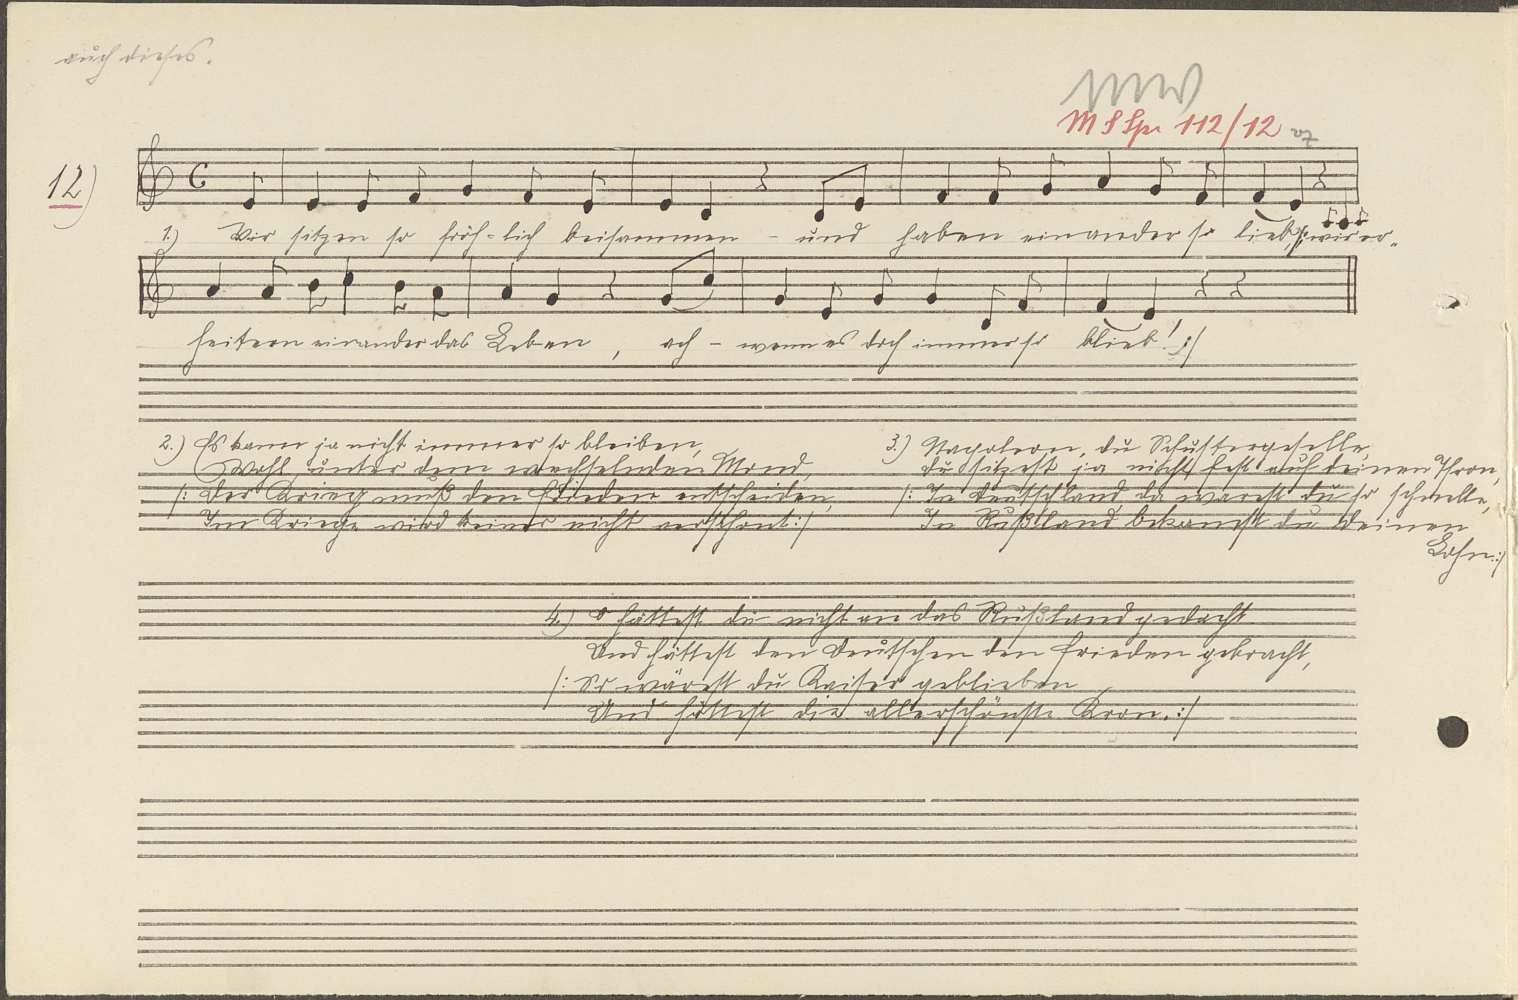 auch dieses.
M S Spr 112/12
12)
1.) Wir sitzen so fröh-lich beisammen - und haben einander so lieb, /: wir er-
heitern einander das Leben, ach - wenn es doch immer so blieb! :/
2.) Es kann ja nicht immer so bleiben,
Wohl unter dem wechselnden Mond,
/: Der Krieg muß den Frieden entscheiden,
Im Kriege wird keiner nicht verschont :/
3.) Napoleon, du Schustergeselle,
Du sitzest ja nicht fest auf deinen Thron,
/: In Deutschland, da warest du so schnelle,
In Rußland bekamest du deinen
Lohn :/
4.) O hättest du nicht an das Rußland gedacht
Und hättest den Deutschen den Frieden gebracht,
/: So wärest du Kaiser geblieben
Und hättest die allerschönste Kron. :/